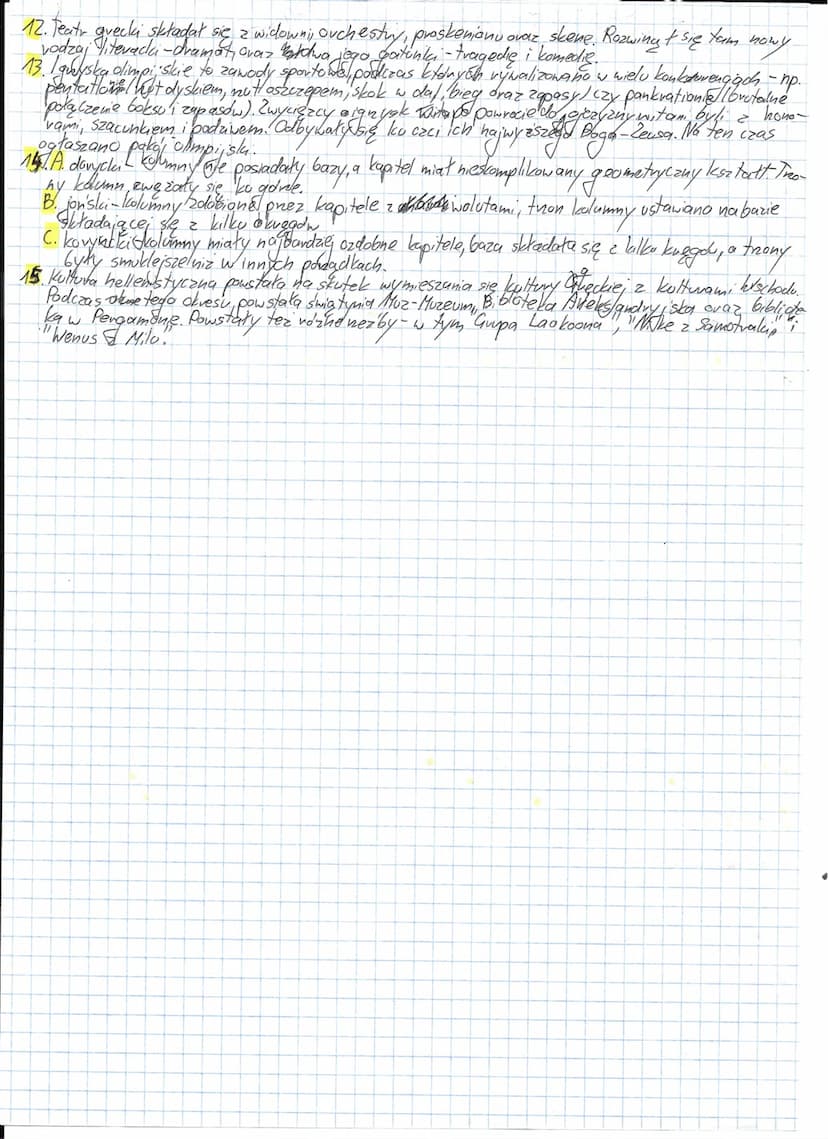 12. Teatr grecki składał się z widowni, orchestry, proskenionu oraz skene. Rozwinął się tam nowy
rodzaj literacki - dramat, oraz dwa jego gatunki - tragedię i komedię.
13. Igrzyska olimpijskie to zawody sportowe, podczas których rywalizowano w wielu konkurencjach - np.
pentatlonie (rzut dyskiem, rzut oszczepem, skok w dal, bieg oraz zapasy) czy pankrationie (brutalne
połączenie boksu i zapasów). Zwycięzcy igrzysk po powrocie do ojczyzny witani byli z hono-
rami, szacunkiem i podziwem. Odbywały się ku czci ich najwyższego Boga - Zeusa. Na ten czas
ogłaszano pokój olimpijski.
14. A. dorycki - kolumny nie posiadały bazy, a kapitel miał nieskomplikowany geometryczny kształt. Trzo-
ny kolumn zwężały się ku górze.
B. joński - kolumny zdobione przez kapitele z wolutami, trzon kolumny ustawiano na bazie
składającej się z kilku okręgów
C. koryncki - kolumny miały najbardziej ozdobne kapitele, baza składała się z kilku kręgów, a trzony
były smuklejsze niż w innych porządkach.
15. Kultura hellenistyczna powstała na skutek wymieszania się kultury Greckiej z kulturami wschodu.
Podczas tego okresu, powstała świątynia Muz - Muzeum, Biblioteka Aleksandryjska oraz bibliote-
ka w Pergamonie. Powstały też rzeźby - w tym Grupa Laokoona", "Nike z Samotraki" i
"Wenus z Milo."